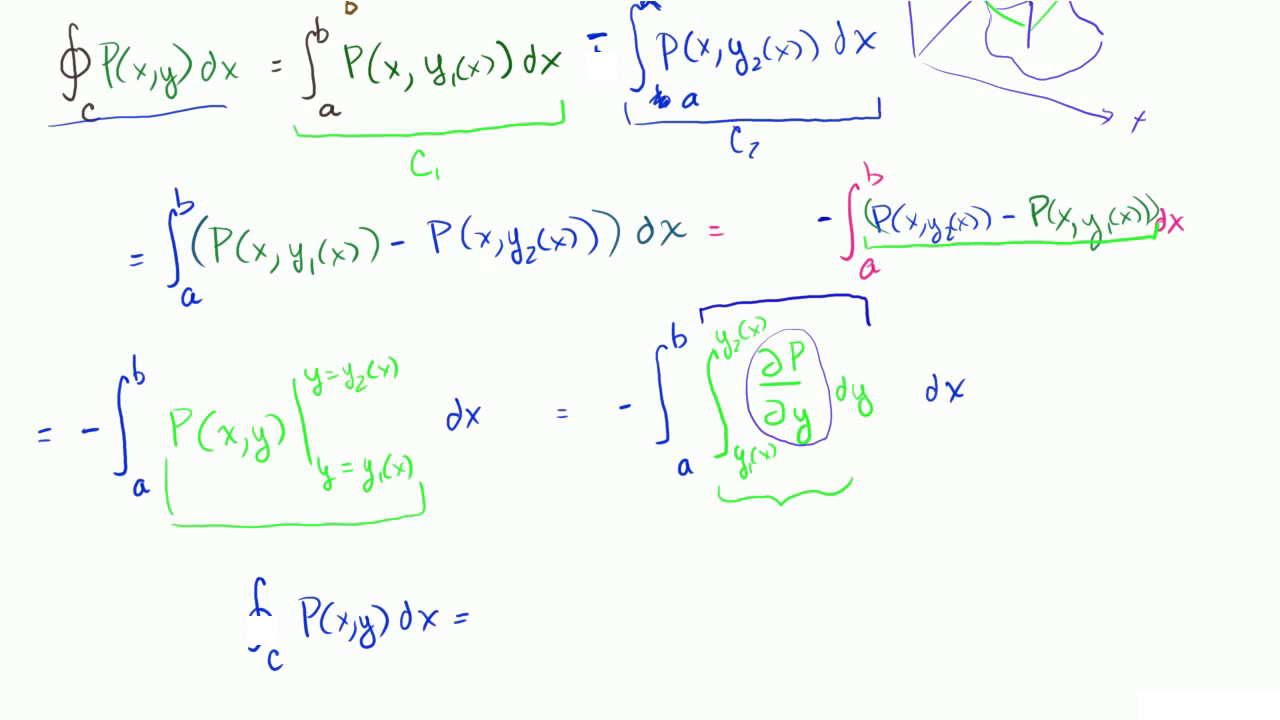 ∮_C P(x,y) dx = ∫_a^b P(x, y₁(x)) dx - ∫_a P(x, y₂(x)) dx
x
C₁
C₂
= ∫_a^b (P(x, y₁(x)) - P(x, y₂(x))) dx = - ∫_a^b (P(x, y₂(x)) - P(x, y₁(x))) dx
= - ∫_a^b P(x,y) |_{y = y₁(x)}^{y = y₂(x)} dx = - ∫_a^b ∫_{y₁(x)}^{y₂(x)} ∂P/∂y dy dx
∫_c P(x,y) dx =